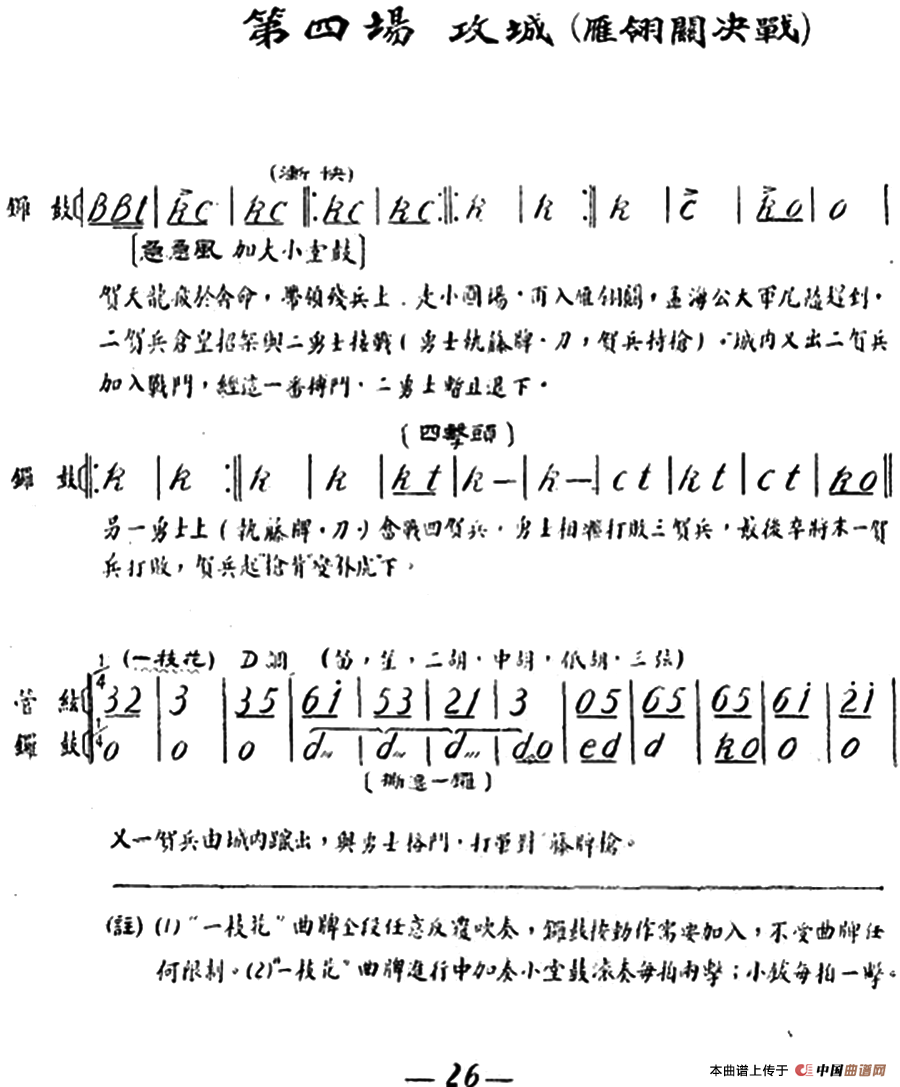 第四場 攻城(雁翎關決戰)
(漸快)
鑼鼓 BBl | kc | kc ‖: kc | kc :‖: k | k :‖ k | c | ko | o |
[急急風 加大小堂鼓]
賀天龍疲於奔命，帶領殘兵上．走小圓場．而入雁翎關，孟海公大軍尾隨趕到．
二賀兵倉皇招架與二勇士接戰(勇士執籐牌．刀，賀兵持槍)．城內又出二賀兵
加入戰鬥，經這一番搏鬥．二勇士暫且退下．
(四擊頭)
鑼鼓 ‖: k | k :‖ k | k | kt | k— | k— | ct | kt | ct | ko ‖
另一勇士上(執籐牌．刀)會戰四賀兵．勇士相繼打敗三賀兵，最後卒將末一賀
兵打敗，賀兵起"搶背"變"卧虎"下．
1/4 (一枝花) D調 (笛，笙，二胡．中胡．低胡．三弦)
管絃 32 | 3 | 35 | 6i | 53 | 21 | 3 | 05 | 65 | 65 | 6i | 2i |
鑼鼓 1/4 o | o | o | d | d | d | do | ed | d | ko | o | o |
(撕邊一鑼)
又一賀兵由城內躥出，與勇士格鬥．打單對"籐牌槍。
(註) (1) "一枝花"曲牌全段任意反覆吹奏，鑼鼓按動作需要加入，不受曲牌任
何限制。(2)"一枝花"曲牌進行中加奏小堂鼓滾奏每拍兩擊；小鈸每拍一擊。
—26—
本曲谱上传于 中国曲谱网